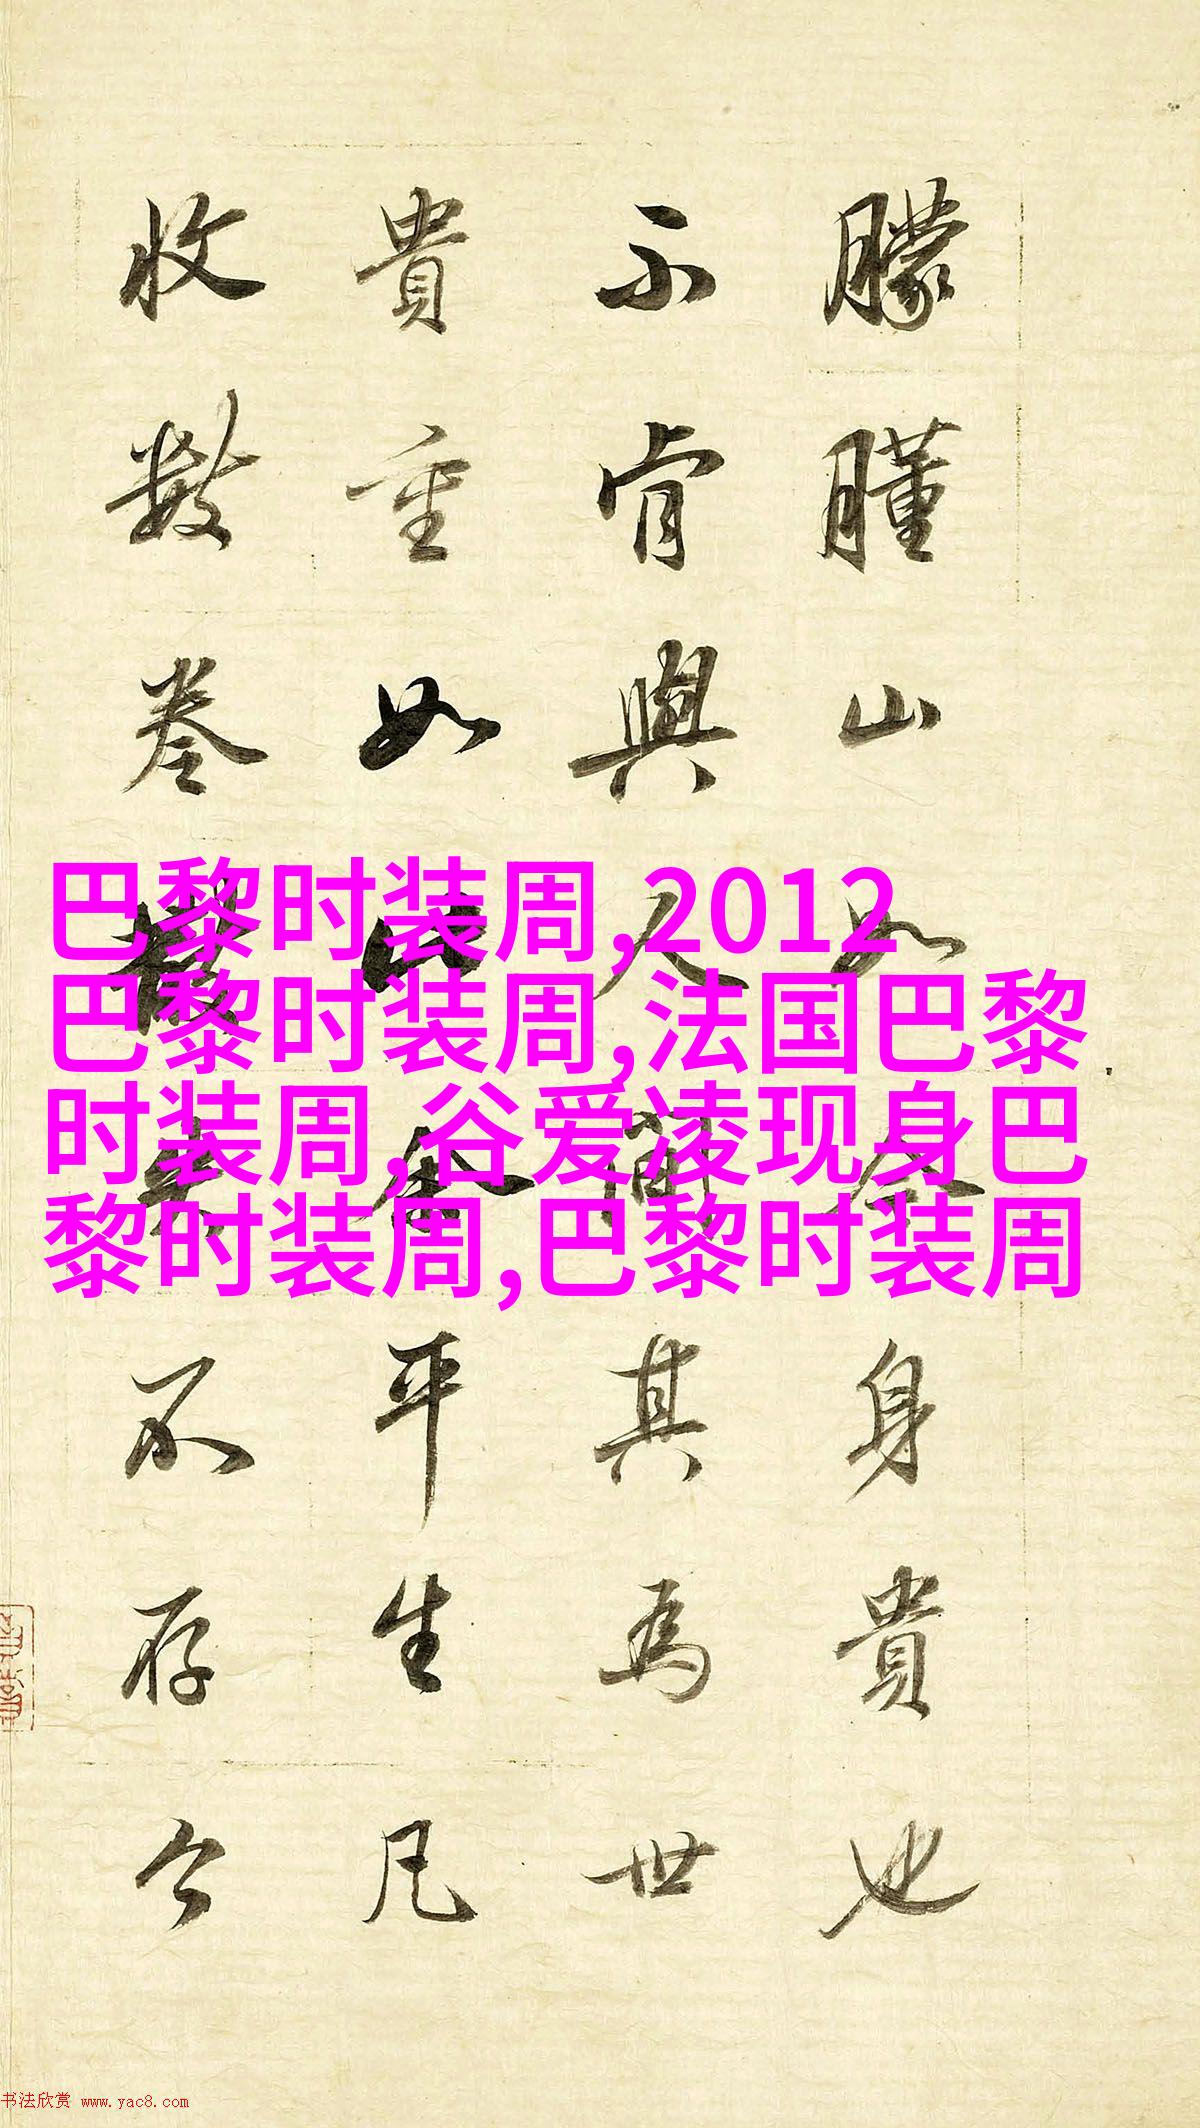 朦山如身貴也
不肯與人其為世
貴重如此余平生凡
收數卷不存今
巴黎时装周,2012
巴黎时装周,法国巴黎
时装周,谷爱凌现身巴
黎时装周,巴黎时装周
书法欣赏 www.yac8.com